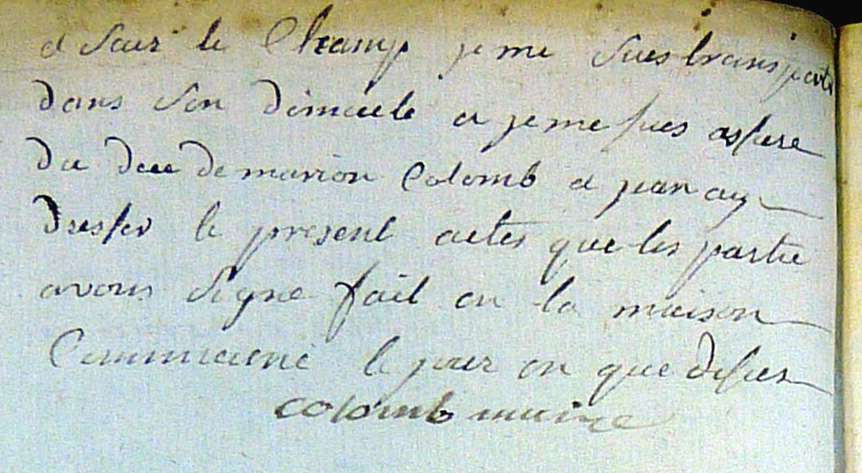 a Sur le Champ je me suis transporte
dans son domicile a je me suis assure
du dee de marion Colomb a jean ay
dresser le present actes que les partie
avons Signe fait en la maison
Communne le jour en que desus
colomb maire